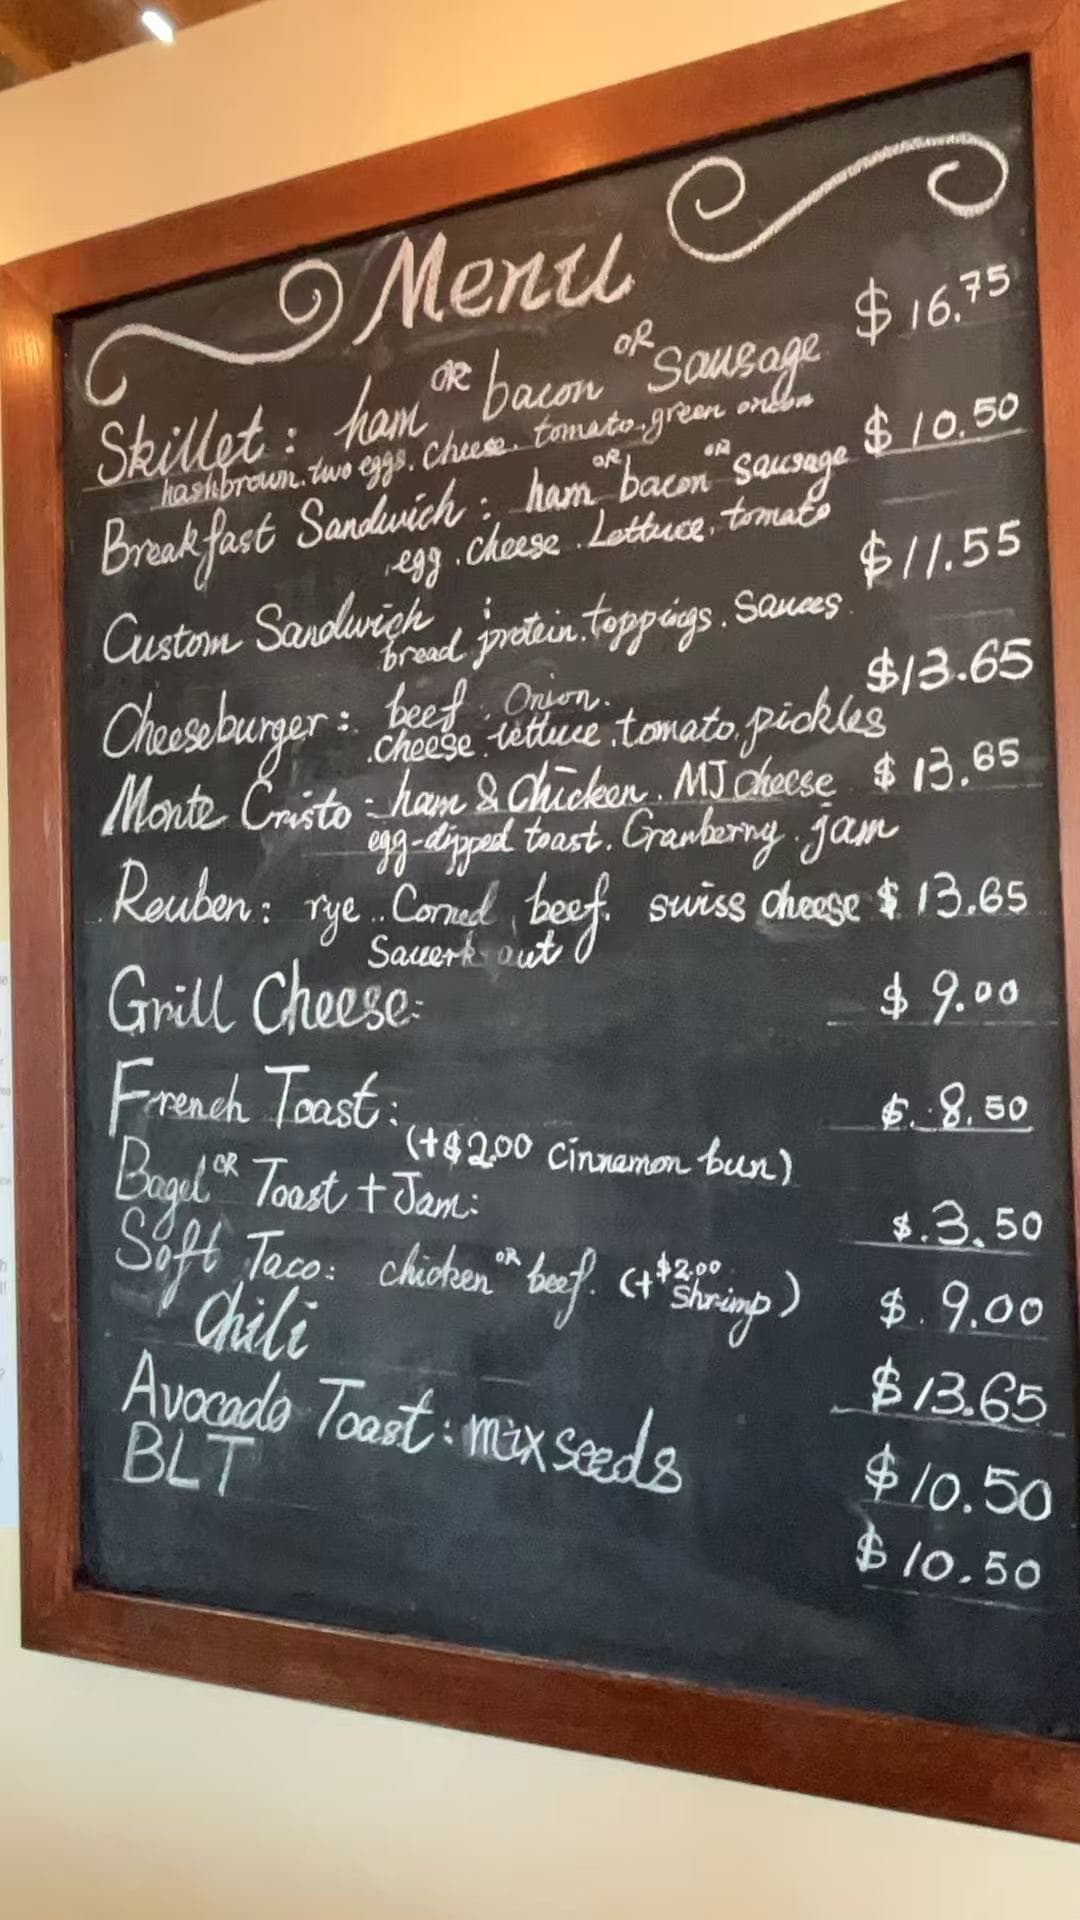 Menu
Skillet: ham OR bacon OR Sausage $16.75
hashbrown. two eggs. Cheese. tomato. green onion
Breakfast Sandwich: ham OR bacon OR Sausage $10.50
egg. cheese. Lettuce. tomato
Custom Sandwich: $11.55
bread protein. toppings. Sauces
Cheeseburger: beef. Onion. $13.65
cheese. lettuce. tomato. pickles
Monte Cristo: ham & Chicken. MJ Cheese $13.65
egg-dipped toast. Cranberry jam
Reuben: rye.. Corned beef. swiss cheese $13.65
Sauerkraut
Grill Cheese: $9.00
French Toast: $8.50
(+$2.00 Cinnamon bun)
Bagel OR Toast + Jam: $3.50
Soft Taco: chicken OR beef. (+$2.00 Shrimp) $9.00
Chili $13.65
Avocado Toast: mix seeds $10.50
BLT $10.50